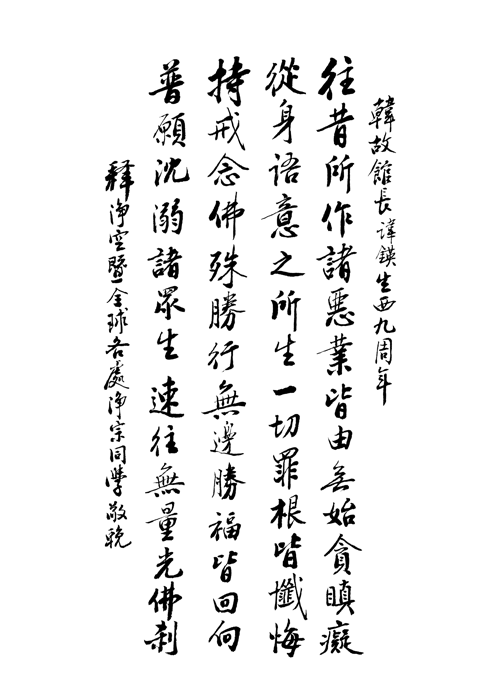 韓故館長諱鍈生西九周年
往昔所作諸惡業皆由無始貪瞋癡
從身語意之所生一切罪根皆懺悔
持戒念佛殊勝行無邊勝福皆回向
普願沈溺諸眾生速往無量光佛剎
釋淨空暨全球各處淨宗同學敬輓